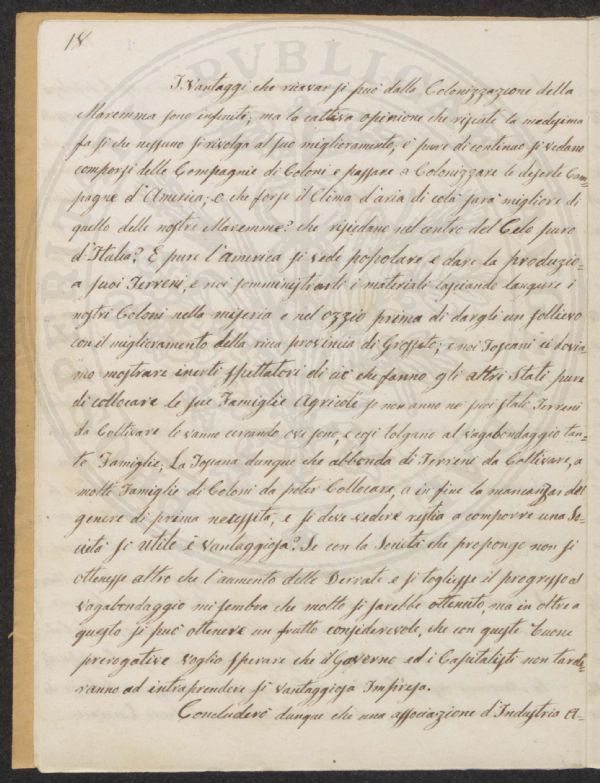 18
I Vantaggi che ricavar si può dalla Colonizzazione della
Maremma sono infiniti, ma la cattiva opinione che risiede la medesima
fa si che nessuno si rivolga al suo miglioramento, e pure di continuo si vedano
comporsi delle Compagnie di Coloni e passare a Colonizzare le deserte Cam-
pagne d'America; e che forse il Clima d'aria di colà sarà migliore di
quello delle nostre Maremme? che risiedano nel centro del Celo puro
d'Italia? E pure l'america si vede popolare e dare la produzio-
a suoi Terreni, e noi somministrarli i materiali lasciando languire i
nostri Coloni nella miseria e nel ozzio prima di dargli un sollievo
con il miglioramento della ricca provincia di Grosseto; e noi Toscani ci dovia-
mo mostrare inerti spettatori di ciò che fanno gli altri Stati pure
di collocare le sue Famiglie Agricole se non anno ne suoi stati Terreni
da Coltivare le vanno cercando ove sono, e così tolgano al vagabondaggio tan-
te Famiglie; La Toscana dunque che abbonda di Terreni da Coltivare, a
molte Famiglie di Coloni da poter Collocare, a in fine la mancanza del
genere di prima necessità, e si deve vedere restia a comporre una So-
cietà si utile e vantaggiosa? Se con la Società che propongo non si
ottenesse altro che l'aumento delle Derrate e si togliesse il progresso al
vagabondaggio mi sembra che molto si sarebbe ottenuto, ma in oltre a
questo si può ottenere un frutto considerevole, che con queste buone
prerogative voglio sperare che il Governo ed i Capitalisti non tarde-
ranno ad intraprendere si vantaggiosa Impresa.
Concluderò dunque che una associazione d'Industria A-